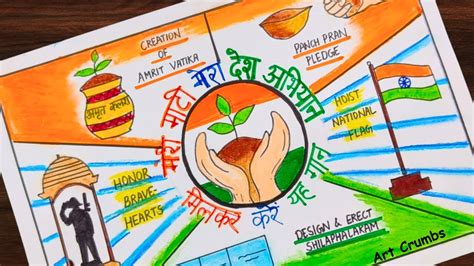 CREATION
OF
AMRIT VATIKA
PANCH PRAN
PLEDGE
अमृत कलश
मेरी माटी मेरा देश अभियान
HOIST
NATIONAL
FLAG
HONOR
BRAVE-
HEARTS
मिलकर करें यह गान
DESIGN & ERECT
SHILAPHALAKAM
Art Crumbs